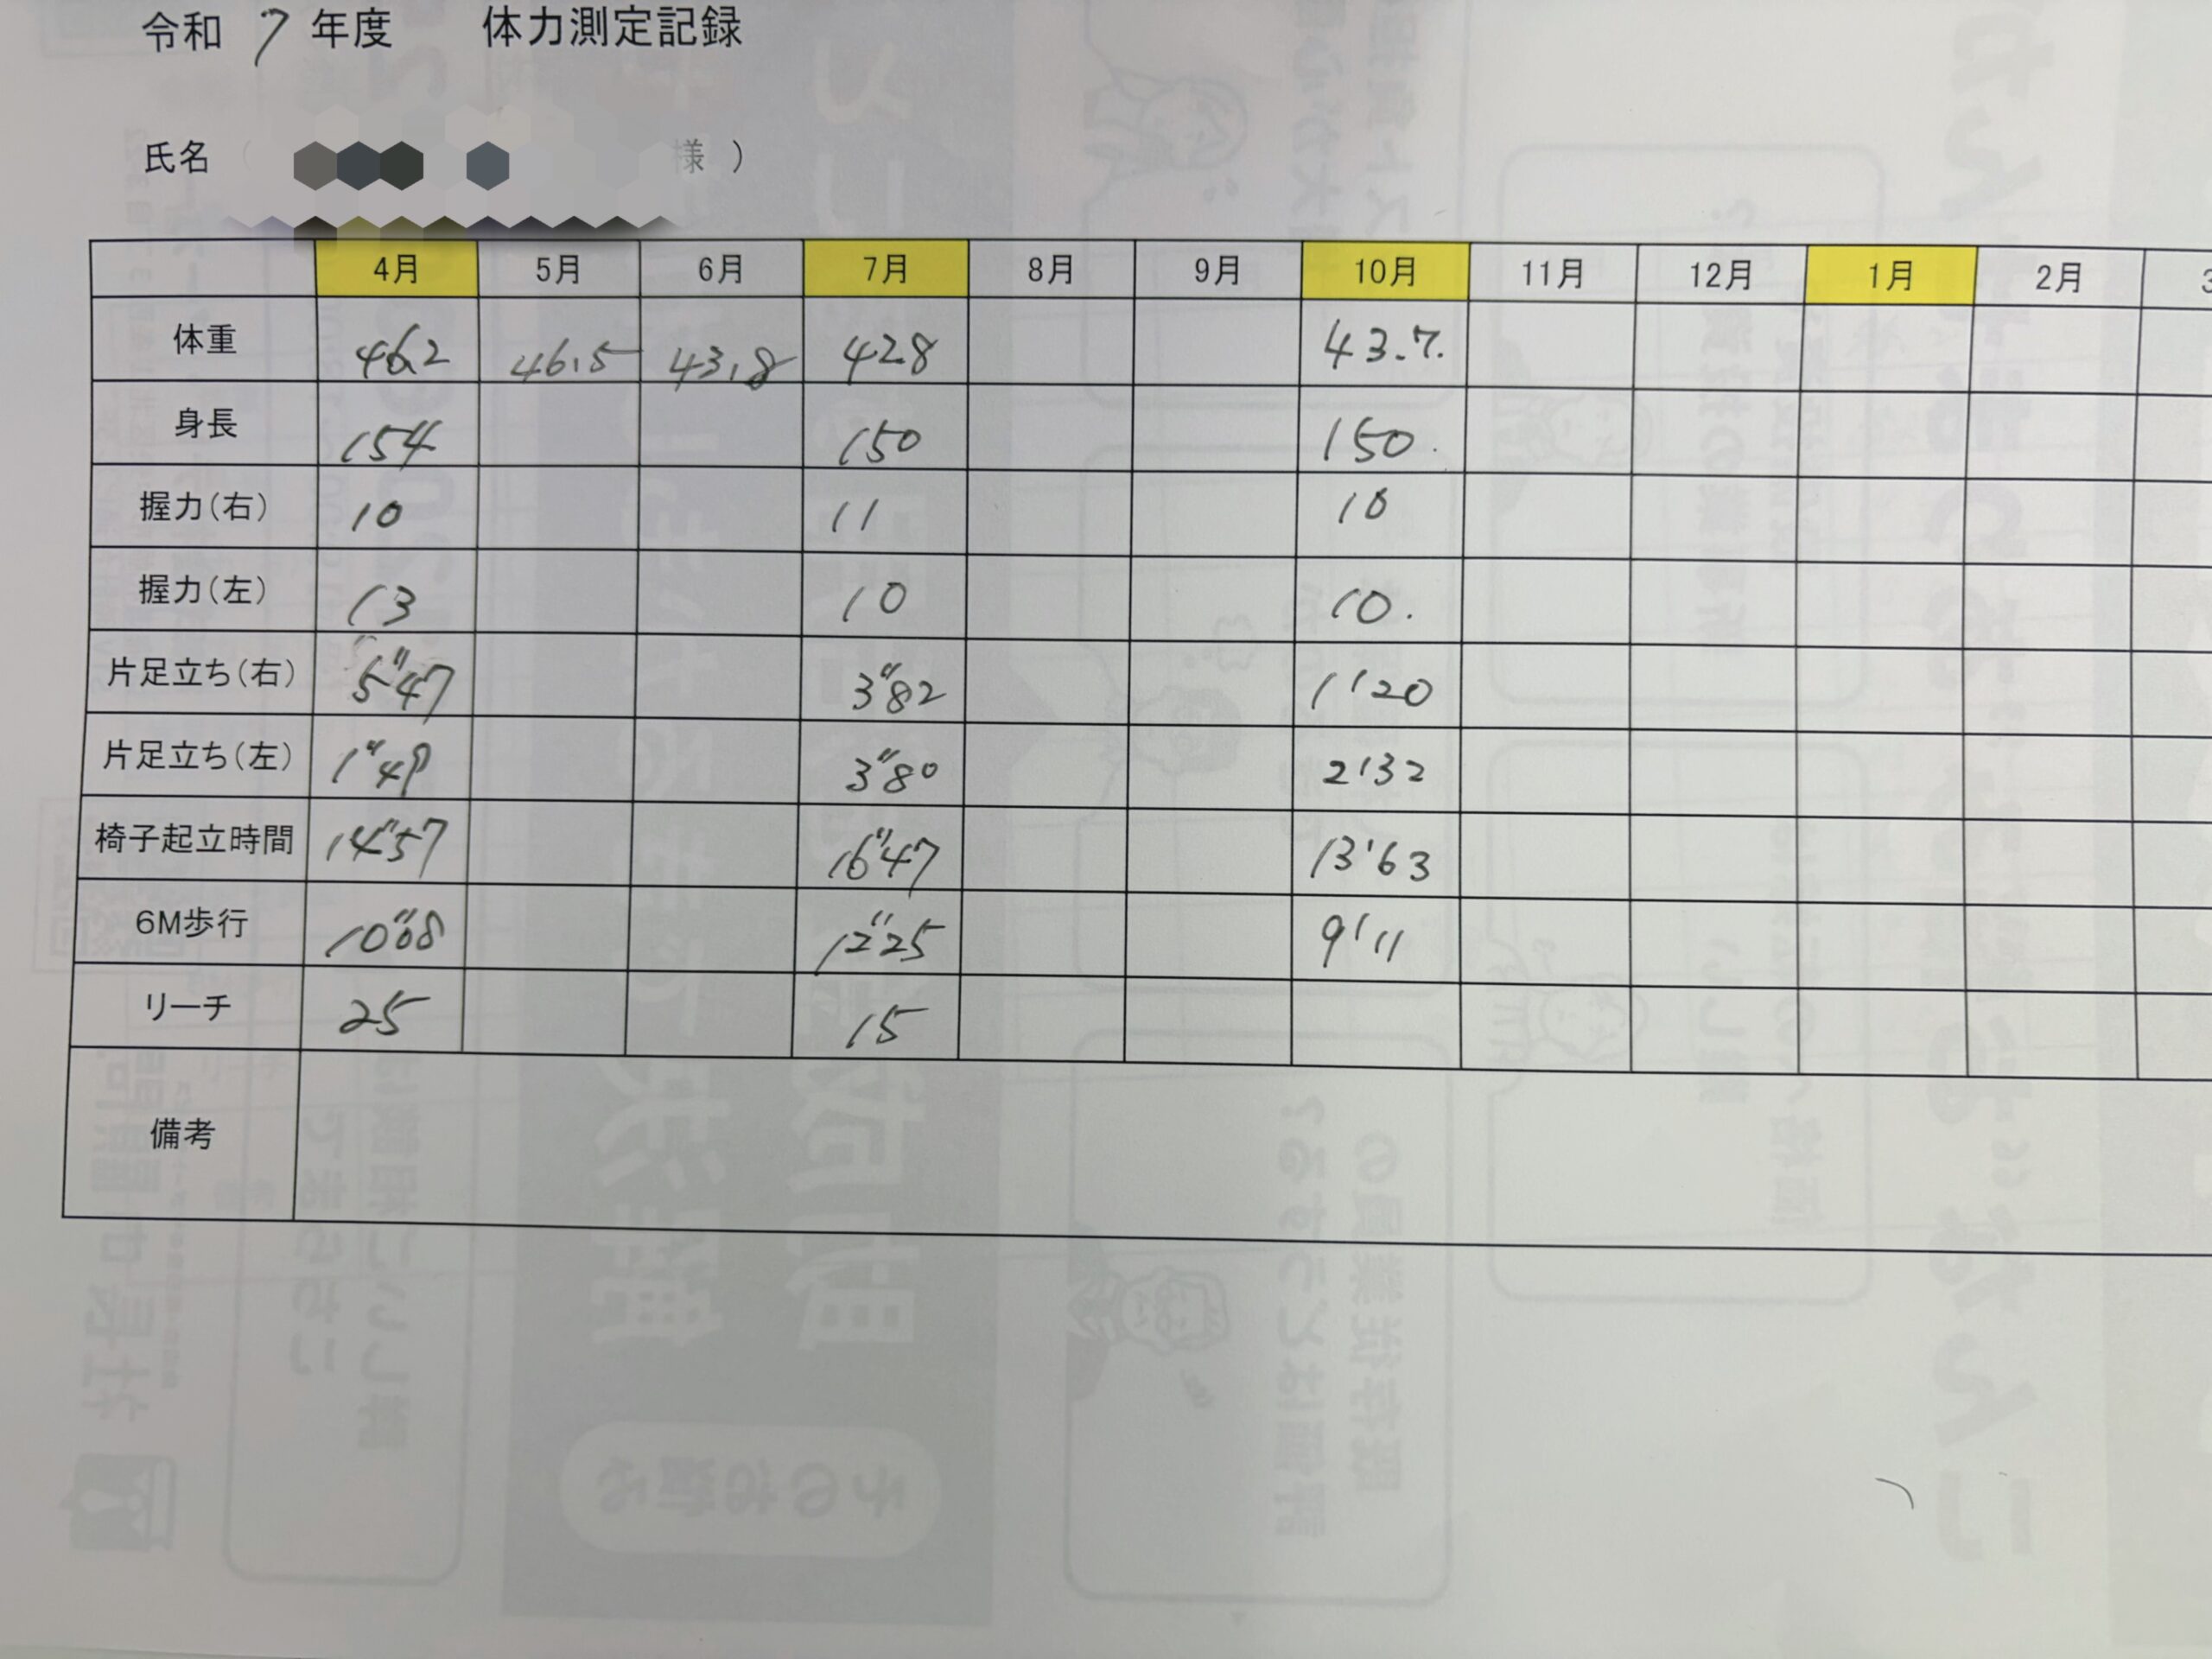 令和 7 年度 体力測定記録
氏名( 様 )
4月 5月 6月 7月 8月 9月 10月 11月 12月 1月 2月 3
体重 46.2 46.5 43.8 42.8 43.7.
身長 154 150 150.
握力(右) 10 11 10
握力(左) 13 10 10.
片足立ち(右) 5"47 3"82 1'20
片足立ち(左) 1"49 3"80 2'32
椅子起立時間 14"57 16"47 13'63
6M歩行 10"08 12"25 9'11
リーチ 25 15
備考